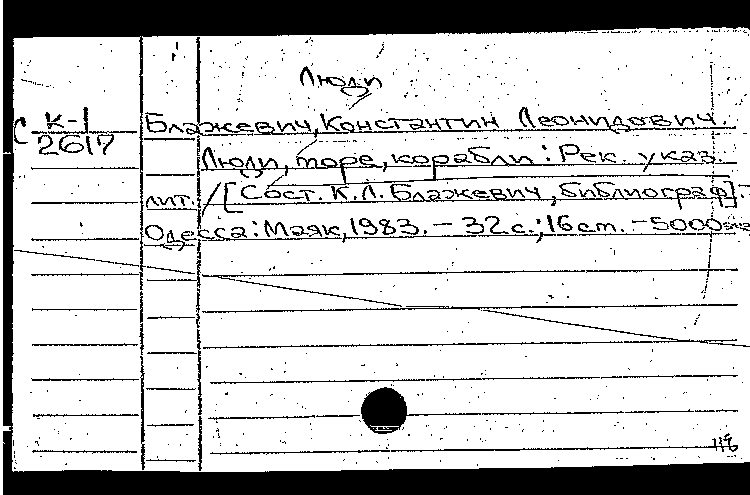 Люди
С К-1 Блажевич, Константин Леонидович.
2617
Люди, море, корабли: Рек. указ.
лит. / [Сост. К.Л. Блажевич, библиограф]. -
Одесса: Маяк, 1983. - 32 с.; 16 см. - 5000 экз